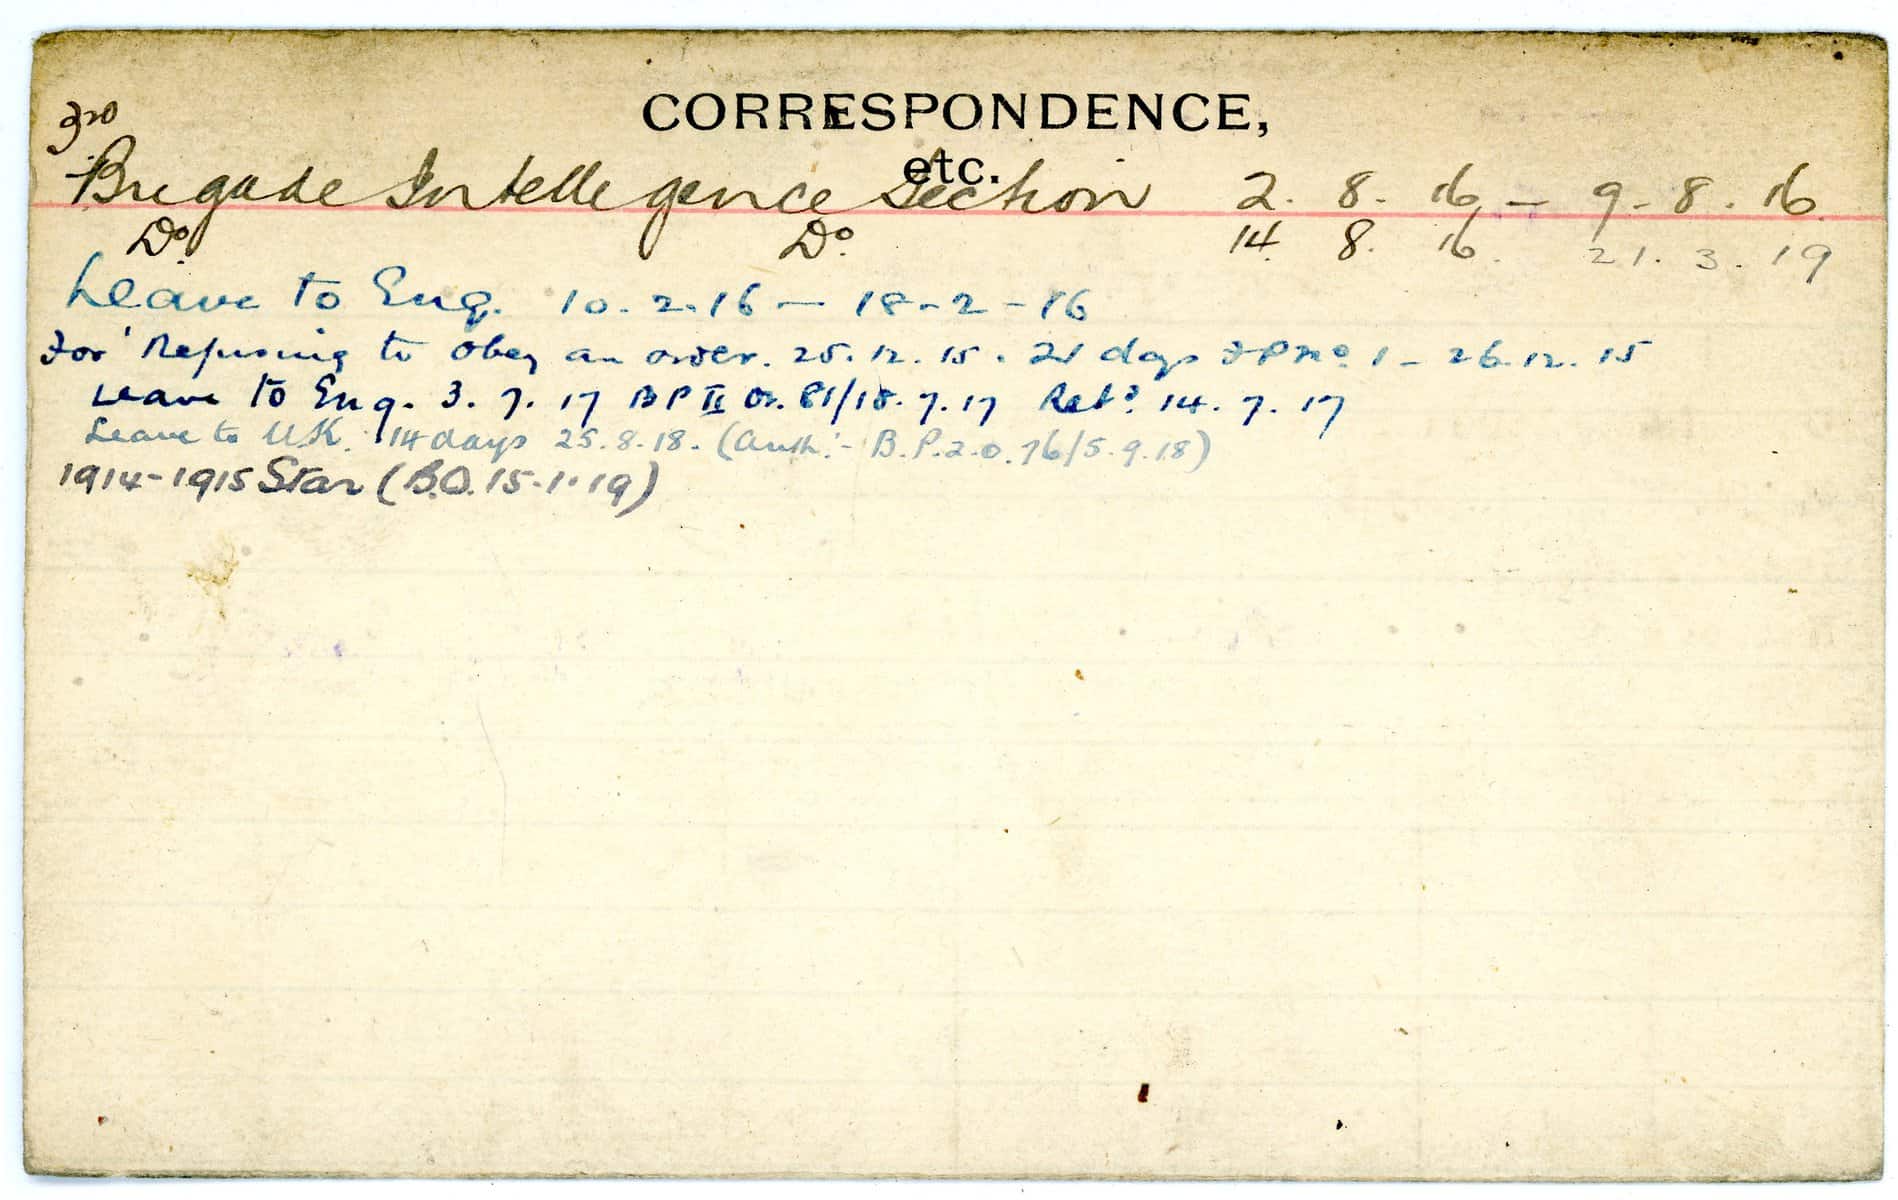 CORRESPONDENCE,
etc.
3rd
Brigade Intelligence Section 2. 8. 16 – 9. 8. 16.
Do. Do. 14. 8. 16. 21. 3. 19
Leave to Eng. 10. 2. 16 – 18 - 2 - 16
For Refusing to obey an order. 25. 12. 15. 21 days F P No. 1 – 26. 12. 15
Leave to Eng. 3. 7. 17 B P II O. 81/18. 7. 17 Retd. 14. 7. 17
Leave to U.K. 14 days 25. 8. 18. (Auth:- B.P.2.0.76/5.9.18)
1914-1915 Star (B.O. 15.1.19)